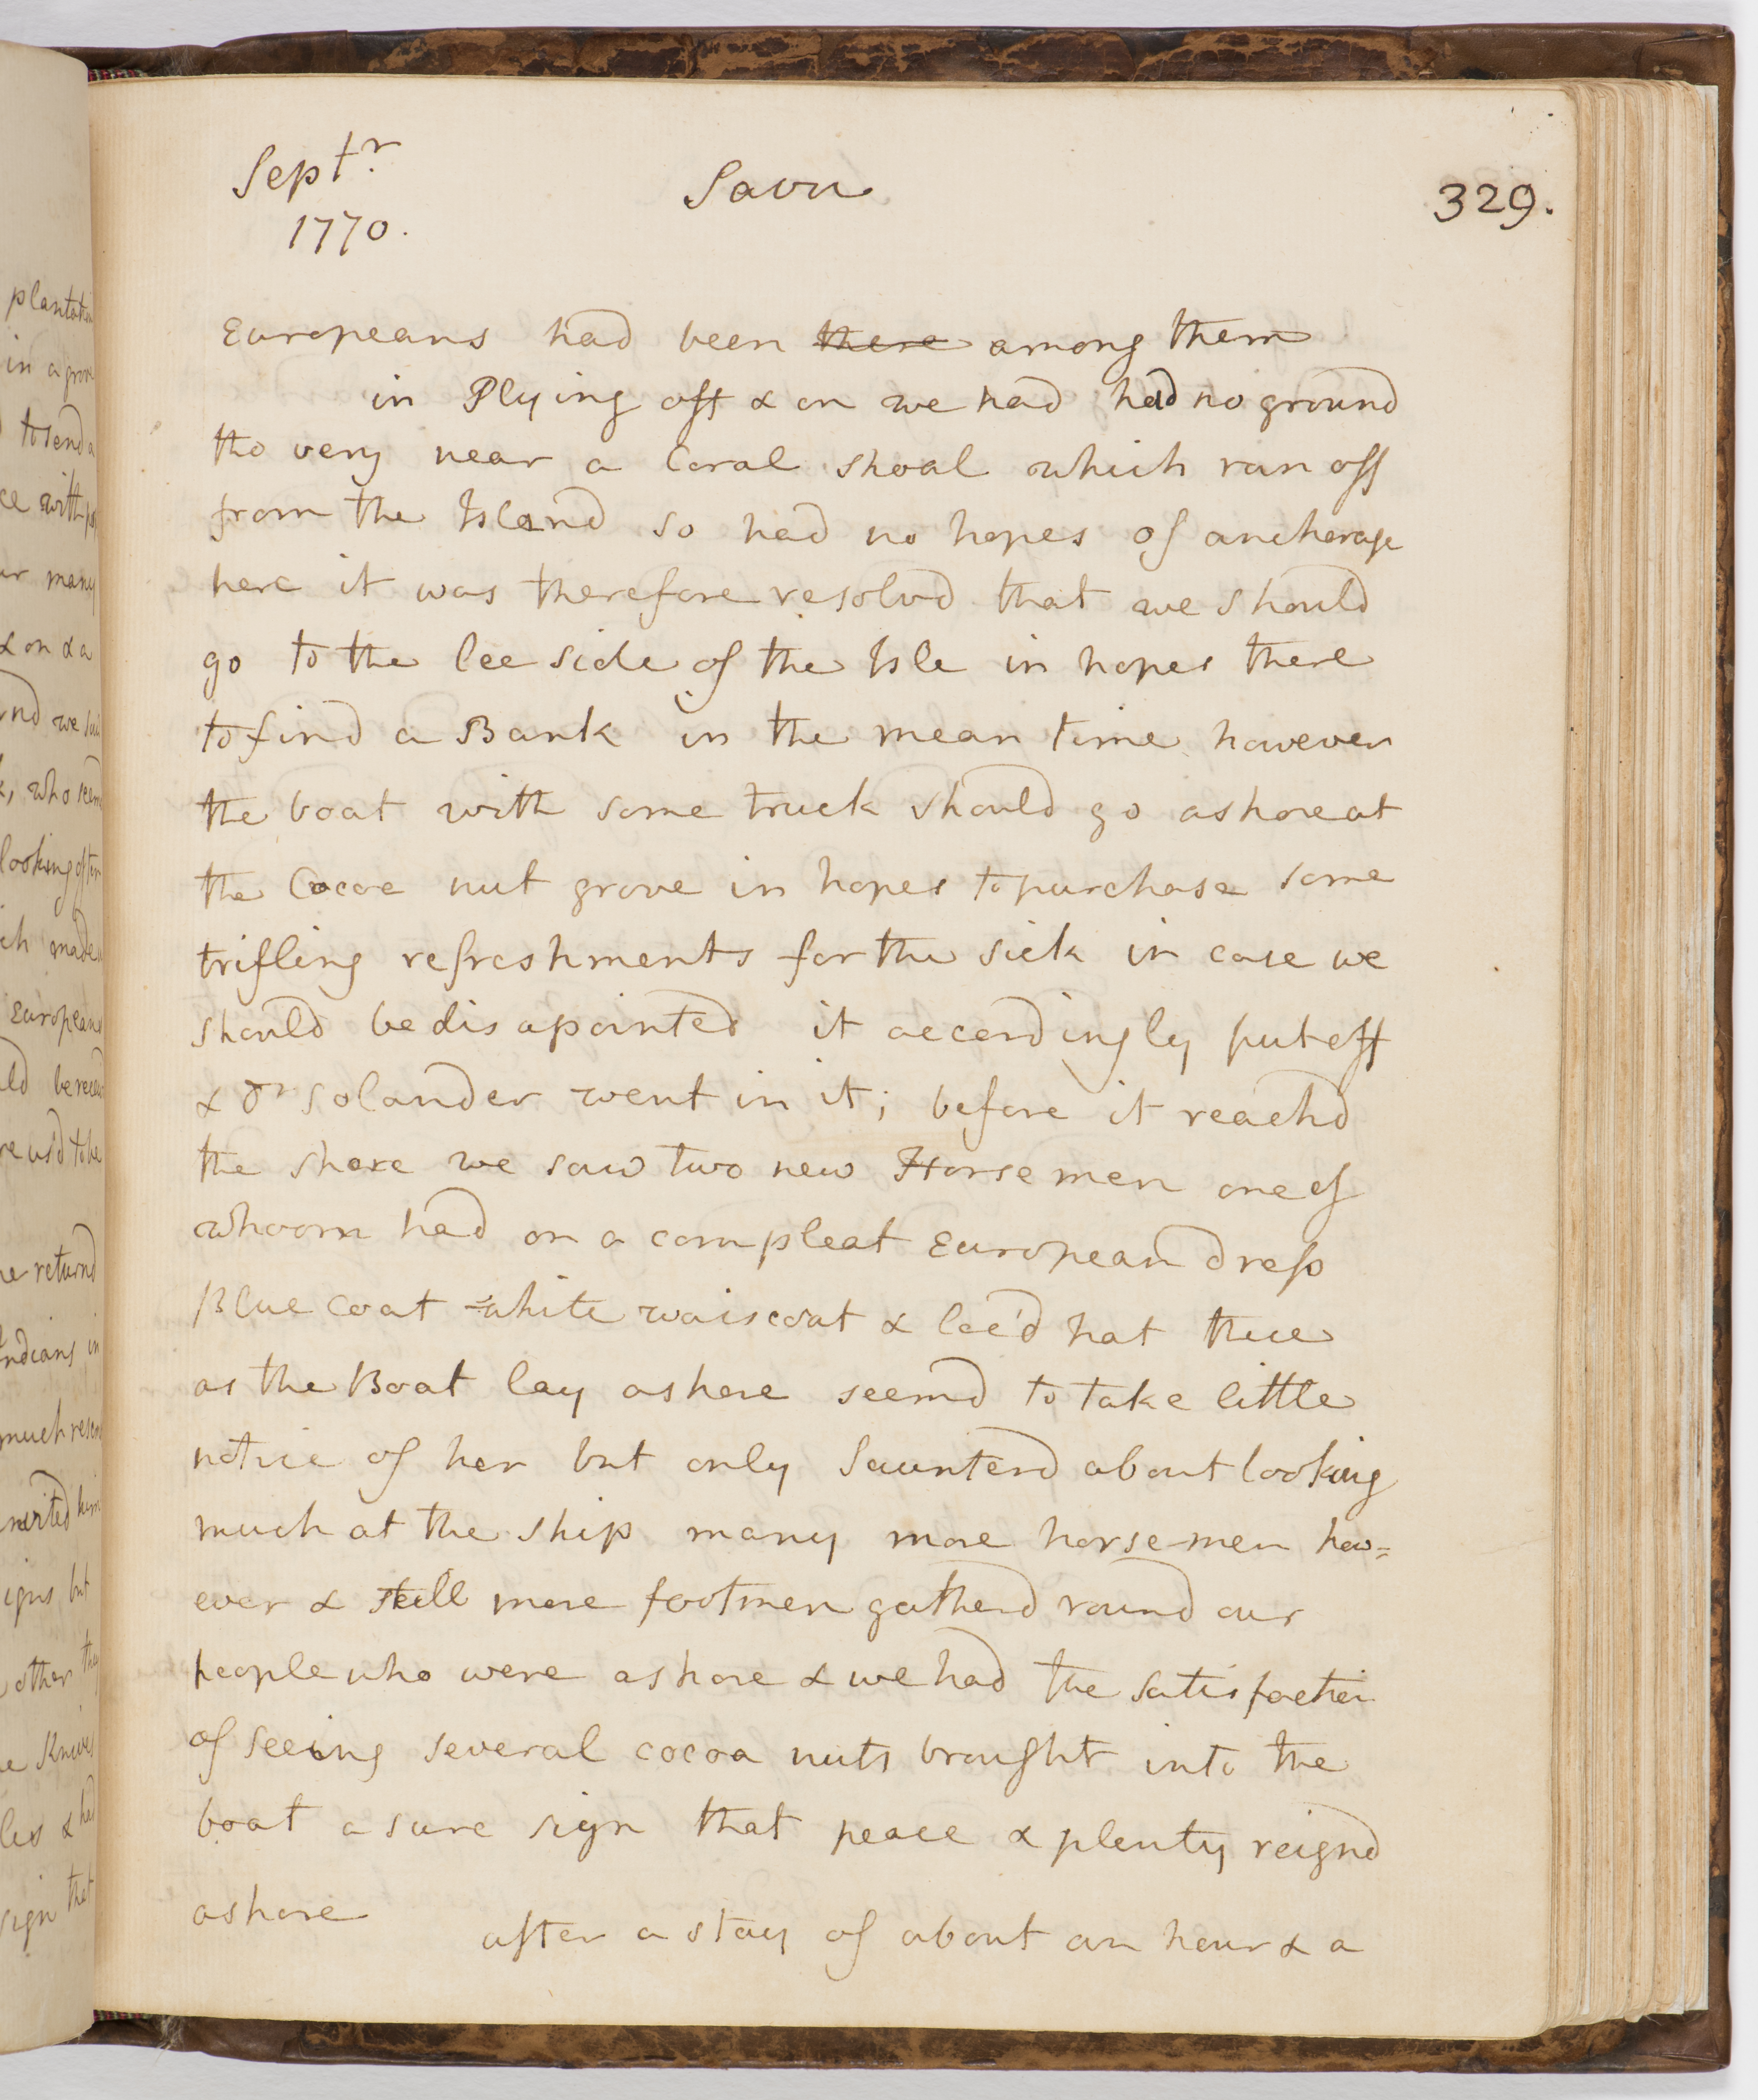 Septr
1770.
Savu
329.
Europeans had been there among them
in Plying off & on we had had no ground
tho very near a Coral shoal which ran off
from the Island so had no hopes of anchorage
here it was therefore resolvd that we should
go to the lee side of the Isle in hopes there
to find a Bank in the mean time however
the boat with some truck should go ashore at
the Cocoe nut grove in hopes to purchase some
trifling refreshments for the sick in case we
should be disapointed it accordingly put off
& Dr Solander went in it; before it reachd
the shore we saw two new Horsemen one of
whoom had on a compleat European dress
Blue coat white waiscoat & lac'd hat these
as the Boat lay ashore seemd to take little
notice of her but only Saunterd about looking
much at the ship many more horsemen how=
ever & still more footmen gatherd round our
people who were ashore & we had the satisfaction
of seeing several cocoa nuts brought into the
boat a sure sign that peace & plenty reignd
ashore
after a stay of about an hour & a
plantation
in a grove
to send a
with
many
& on & a
we
who
looking
made
Europeans
usd to be
returnd
Indians in
much
him
but
other
& had
sign that